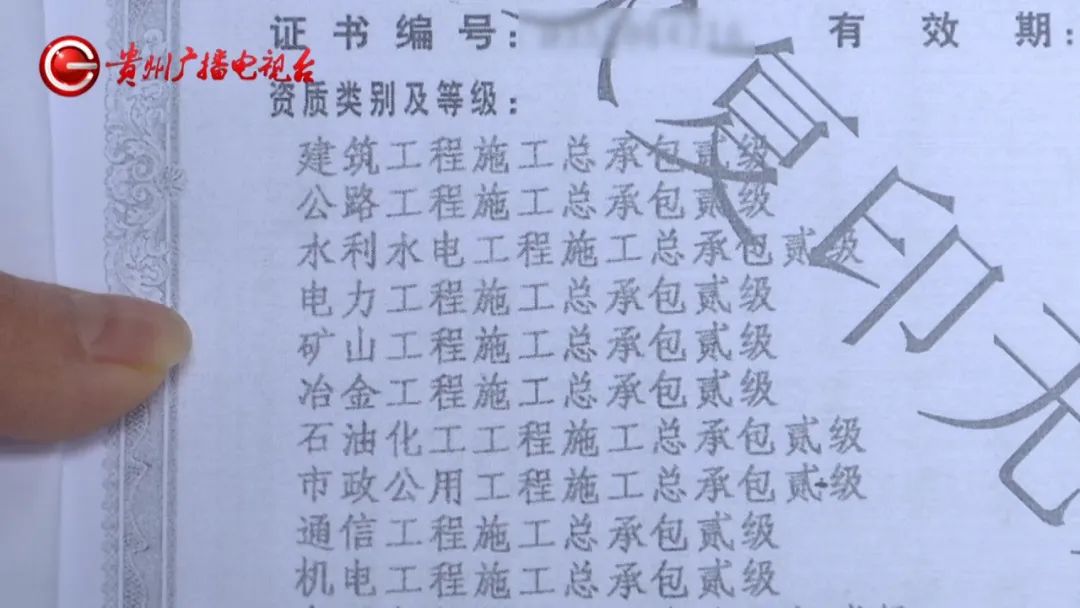 证书编号：
有效期：
贵州广播电视台
资质类别及等级：
建筑工程施工总承包贰级
公路工程施工总承包贰级
水利水电工程施工总承包贰级
电力工程施工总承包贰级
矿山工程施工总承包贰级
冶金工程施工总承包贰级
石油化工工程施工总承包贰级
市政公用工程施工总承包贰级
通信工程施工总承包贰级
机电工程施工总承包贰级
复印无